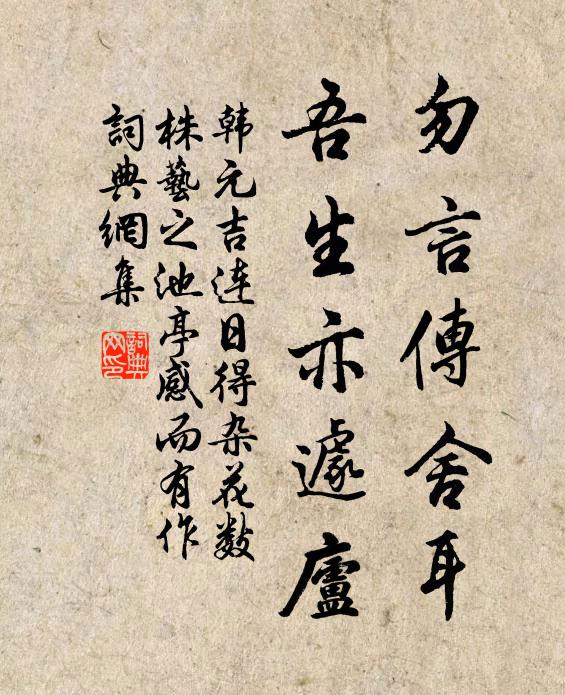 勿言傳舍耳
吾生亦遽廬
韩元吉连日得杂花数
株藝之池亭感而有作
詞典網集
詞典
网印